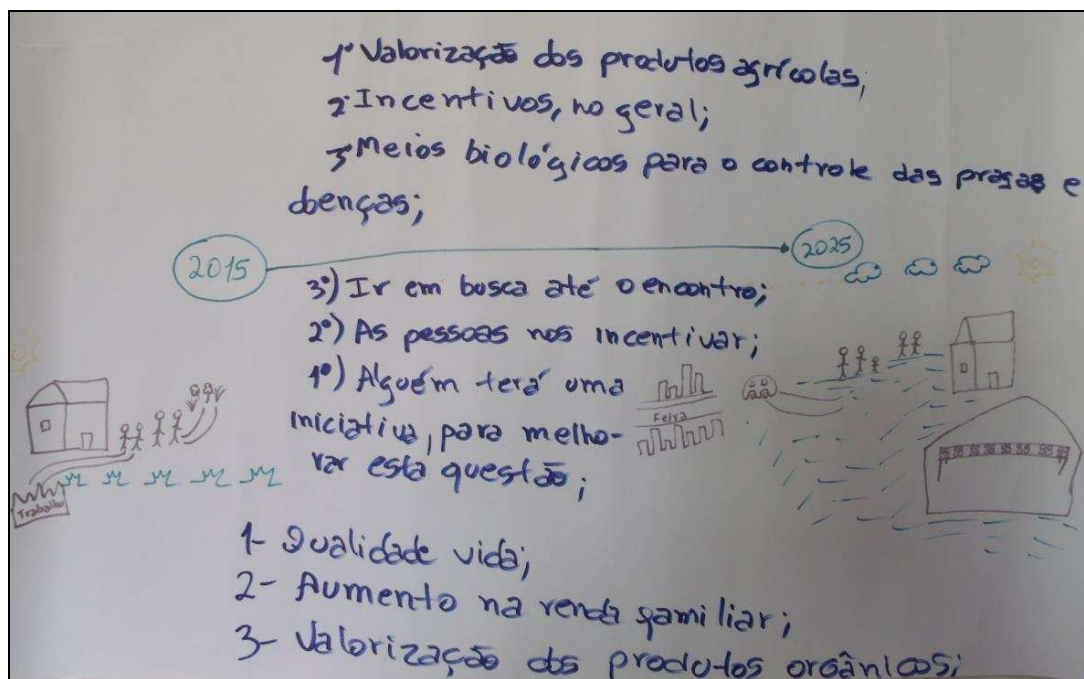 1º Valorização dos produtos agrícolas;
2º Incentivos, no geral;
3º Meios biológicos para o controle das pragas e
doenças;
2015
2025
3º) Ir em busca até o encontro;
2º) As pessoas nos incentivar;
1º) Alguém terá uma
iniciativa, para melho-
rar esta questão;
Feira
Trabalho
1- Qualidade vida;
2- Aumento na renda familiar;
3- Valorização dos produtos orgânicos;